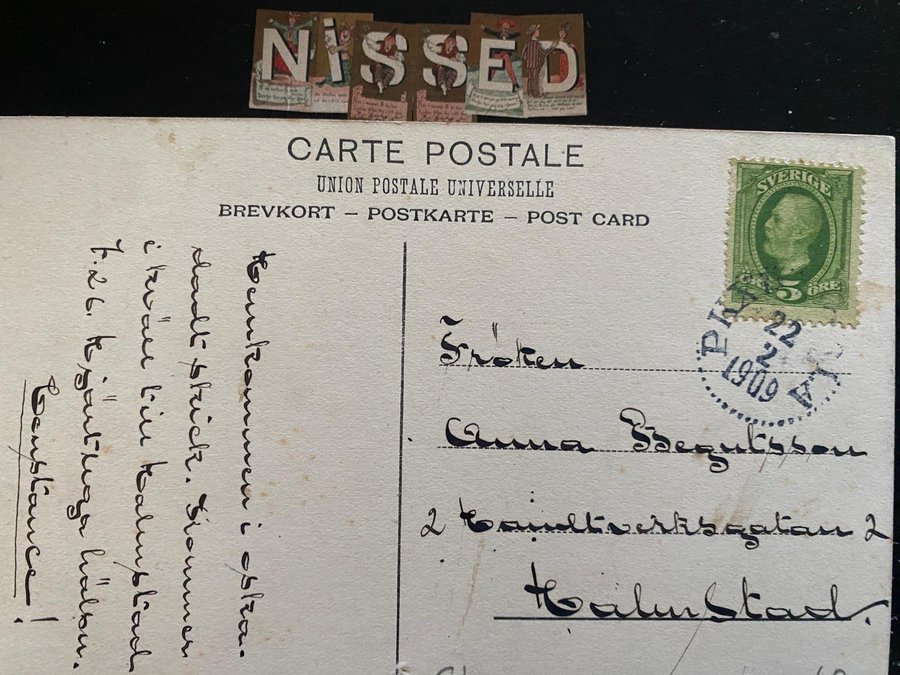 NiSSED
CARTE POSTALE
UNION POSTALE UNIVERSELLE
BREVKORT – POSTKARTE – POST CARD
SVERIGE
5 ÖRE
22
2
1909
Hemkommen i oska-
dadt skick. Kommer
i kväll till Halmstad
7.26. Hjärtliga hälsn.
Constance!
Fröken
Anna
2 Handtverksgatan 2
Halmstad.